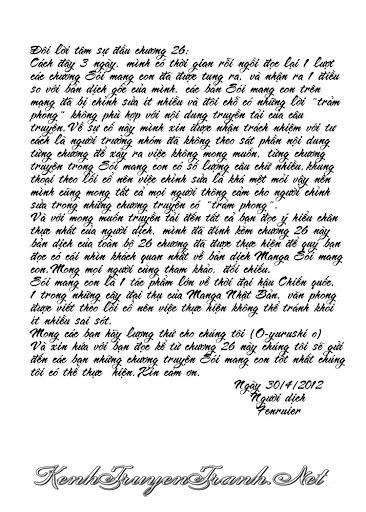 Đôi lời tâm sự đầu chương 26:
Cách đây 3 ngày, mình có thời gian rỗi ngồi đọc lại 1 lượt
các chương Sói mang con đã được tung ra, và nhận ra 1 điều
so với bản dịch gốc của mình, các bản Sói mang con trên
mạng đã bị chỉnh sửa ít nhiều và đôi chỗ có những lời "trảm
phong" không phù hợp với nội dung truyền tải của câu
truyện.Về sự cố này mình xin được nhận trách nhiệm với tư
cách là người trưởng nhóm đã không theo sát phần nội dung
từng chương để xảy ra việc không mong muốn, từng chương
truyện trong Sói mang con có số lượng câu chữ nhiều,khung
thoại theo lối cổ nên việc chỉnh sửa là khá mệt mỏi vậy nên
mình cũng mong tất cả mọi người thông cảm cho người chỉnh
sửa trong những chương truyện có "trảm phong".
Và với mong muốn truyền tải đến tất cả bạn đọc ý hiểu chân
thực nhất của người dịch, mình đã đính kèm chương 26 này
bản dịch của toàn bộ 26 chương đã được thực hiện để quý bạn
đọc có cái nhìn khách quan nhất về bản dịch Manga Sói mang
con.Mong mọi người cùng tham khảo, đối chiếu.
Sói mang con là 1 tác phẩm lớn về thời đại hậu Chiến quốc,
1 trong những cây đại thụ của Manga Nhật Bản, văn phong
được viết theo lối cổ nên việc thực hiện không thể tránh khỏi
ít nhiều sai sót.
Mong các bạn hãy lượng thứ cho chúng tôi (O-yurushi o)
Và xin hứa với bạn đọc kể từ chương 26 này chúng tôi sẽ gửi
đến các bạn những chương truyện Sói mang con tốt nhất chúng
tôi có thể thực hiện.Xin cảm ơn.
Ngày 30/4/2012
Người dịch
Fenruier
KenhTruyenTranh.Net